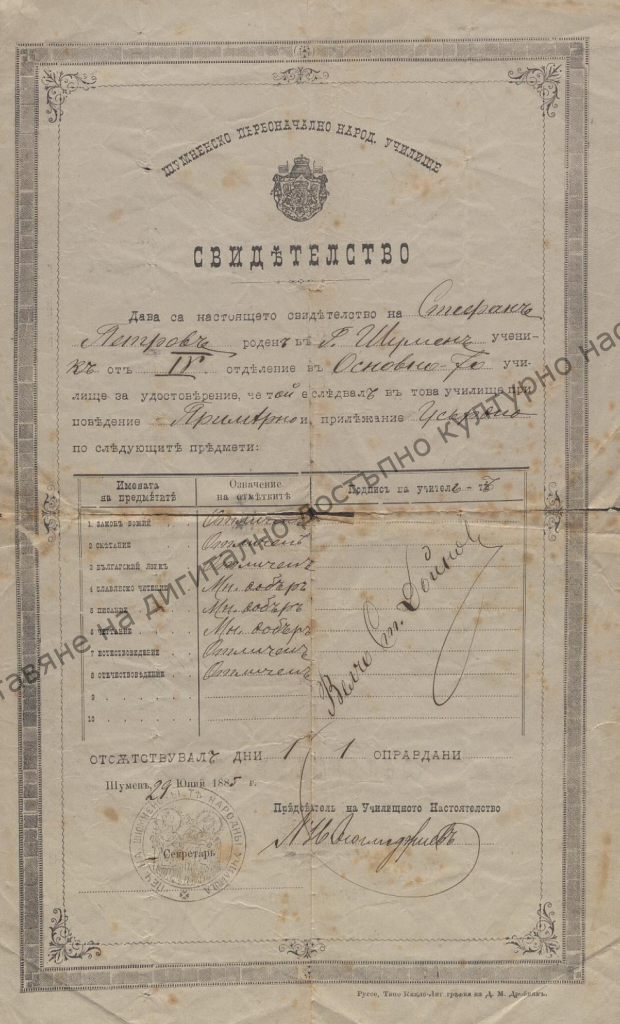 ШУМНЕНСКО ПЪРВОНАЧАЛНО НАРОД. УЧИЛИЩЕ
СВИДѢТЕЛСТВО
Дава са настоящето свидѣтелство на Стефанъ
Петровъ роденъ въ г. Шуменъ учени-
къ отъ IV отдѣление въ Основно-то учи-
лище за удостовѣрение, че той е слѣдвалъ въ това училище при
повѣдение Примѣрно и, прилѣжание Усърдно
по слѣдующитѣ прѣдмети:
Имената на прѣдмѣтитѣ
Означение на отмѣткитѣ
Подпись на учителя-тъ
1 ЗАКОНЪ БОЖИЙ Отличенъ
2 СМѢТАНИЕ Отличенъ
3 БЪЛГАРСКИЙ ЯЗИКЪ Отличенъ
4 СЛАВЯНСКО ЧЕТЕНИЕ Мн. добъръ
5 ПИСАНИЕ Мн. добъръ
6 ЧЕРТАНИЕ Мн. добъръ
7 ЕСТЕСТВОВЕДЕНИЕ Отличенъ
8 ОТЕЧЕСТВОВѢДЕНИЕ Отличенъ
9
10
Велчо Ст. Бойнов
ОТСѪТСТВУВАЛЪ ДНИ 1 1 ОПРАВДАНИ
Шуменъ, 29 Юний 1885 г.
Прѣдсѣдатель на Училищното Настоятелство
Секретарь
Руссе, Типо на Д. М. Дробнякъ.
ставяне на дигитално достъпно културно нас